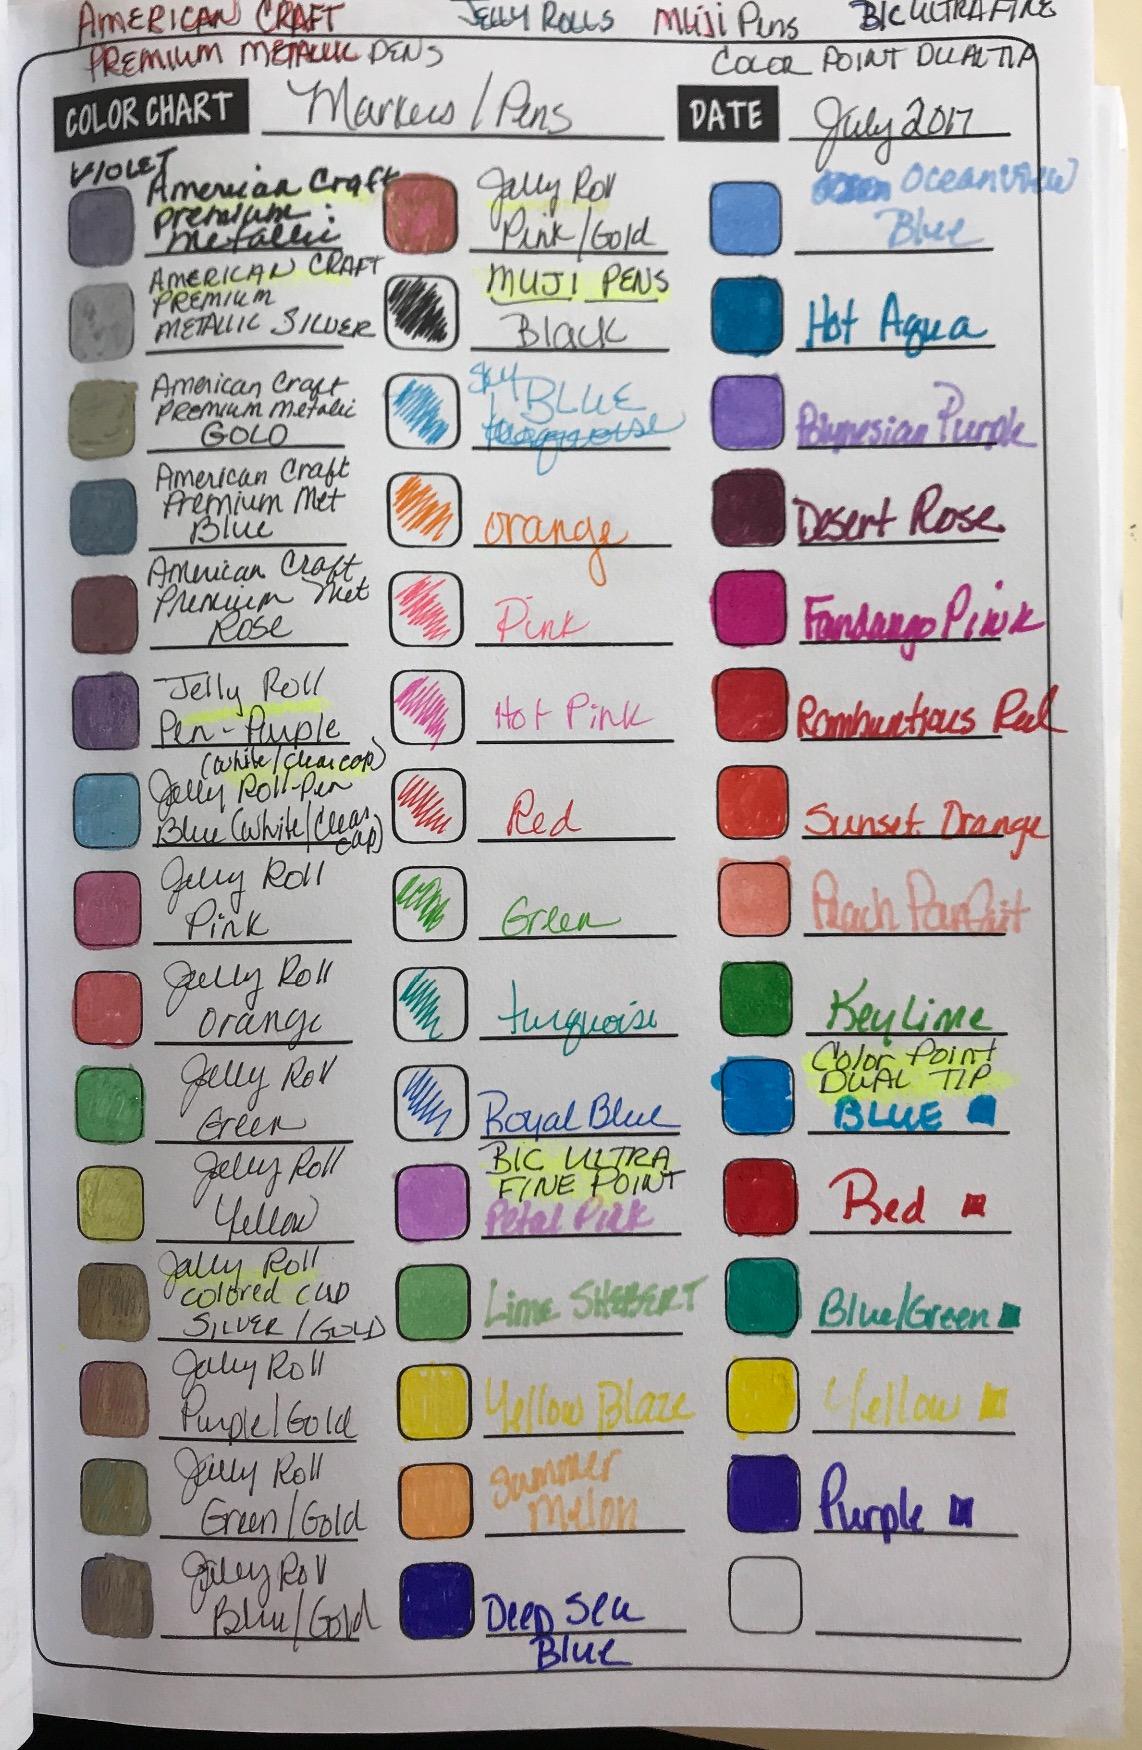 AMERICAN CRAFT JELLY ROLLS MUJI Pens BIC ULTRA FINE
PREMIUM METALLIC PENS COLOR POINT DUAL TIP
COLOR CHART Markers/Pens DATE July 2017
VIOLET
American Craft
premium
Metallic
AMERICAN CRAFT
PREMIUM
METALLIC SILVER
American Craft
PREMIUM Metalic
GOLD
American Craft
Premium Met
Blue
American Craft
Premium Met
Rose
Jelly Roll
Pen - Purple
(White/Clear cap)
Jelly Roll-Pen
Blue (White/Clear
cap)
Jelly Roll
Pink
Jelly Roll
Orange
Jelly Roll
Green
Jelly Roll
Yellow
Jelly Roll
colored cap
SILVER/GOLD
Jelly Roll
Purple/Gold
Jelly Roll
Green/Gold
Jelly Roll
Blue/Gold
Jelly Roll
Pink/Gold
MUJI PENS
Black
Sky BLUE
turquoise
orange
Pink
Hot Pink
Red
Green
turquoise
Royal Blue
BIC ULTRA
FINE POINT
Petal Pink
Lime SHEBERT
Yellow Blaze
Summer
Melon
Deep Sea
Blue
Oceanview
Blue
Hot Aqua
Polynesian Purple
Desert Rose
Fandango Pink
Rambunctious Red
Sunset Orange
Peach Parfait
Key Lime
Color Point
DUAL TIP
BLUE
Red
Blue/Green
Yellow
Purple